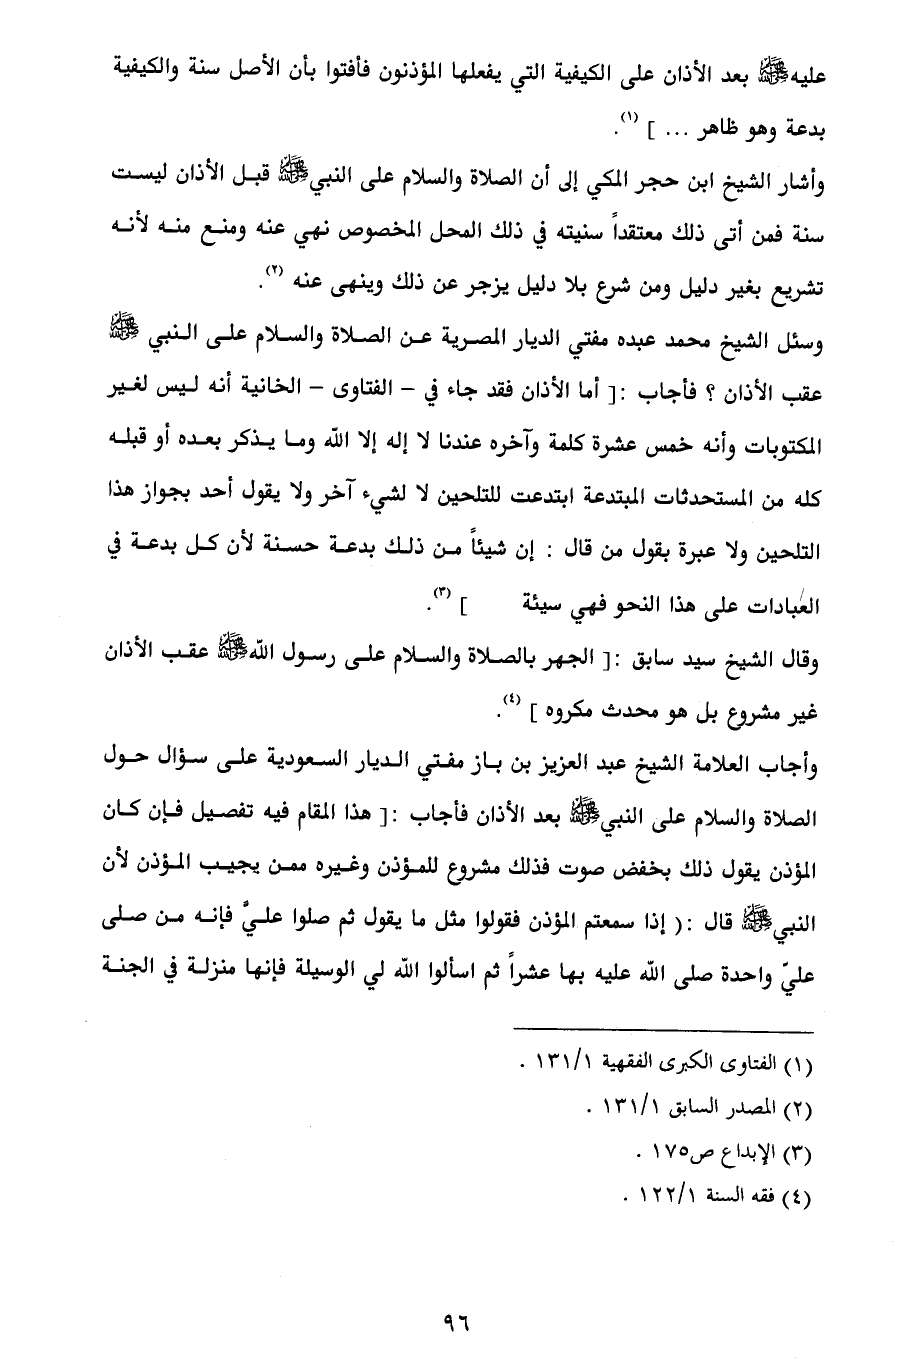 عليه ﷺ بعد الأذان على الكيفية التي يفعلها المؤذنون فأفتوا بأن الأصل سنة والكيفية
بدعة وهو ظاهر ... ] (١).
وأشار الشيخ ابن حجر المكي إلى أن الصلاة والسلام على النبي ﷺ قبل الأذان ليست
سنة فمن أتى ذلك معتقداً سنيته في ذلك المحل المخصوص نهي عنه ومنع منه لأنه
تشريع بغير دليل ومن شرع بلا دليل يزجر عن ذلك وينهى عنه (٢).
وسئل الشيخ محمد عبده مفتي الديار المصرية عن الصلاة والسلام على النبي ﷺ
عقب الأذان ؟ فأجاب :[ أما الأذان فقد جاء في – الفتاوى – الخانية أنه ليس لغير
المكتوبات وأنه خمس عشرة كلمة وآخره عندنا لا إله إلا الله وما يذكر بعده أو قبله
كله من المستحدثات المبتدعة ابتدعت للتلحين لا لشيء آخر ولا يقول أحد بجواز هذا
التلحين ولا عبرة بقول من قال : إن شيئاً من ذلك بدعة حسنة لأن كل بدعة في
العبادات على هذا النحو فهي سيئة ] (٣).
وقال الشيخ سيد سابق :[ الجهر بالصلاة والسلام على رسول الله ﷺ عقب الأذان
غير مشروع بل هو محدث مكروه ] (٤).
وأجاب العلامة الشيخ عبد العزيز بن باز مفتي الديار السعودية على سؤال حول
الصلاة والسلام على النبي ﷺ بعد الأذان فأجاب :[ هذا المقام فيه تفصيل فإن كان
المؤذن يقول ذلك بخفض صوت فذلك مشروع للمؤذن وغيره ممن يجيب المؤذن لأن
النبي ﷺ قال :( إذا سمعتم المؤذن فقولوا مثل ما يقول ثم صلوا عليَّ فإنه من صلى
عليّ واحدة صلى الله عليه بها عشراً ثم اسألوا الله لي الوسيلة فإنها منزلة في الجنة
(١) الفتاوى الكبرى الفقهية ١٣١/١ .
(٢) المصدر السابق ١٣١/١ .
(٣) الإبداع ص١٧٥ .
(٤) فقه السنة ١٢٢/١ .
٩٦